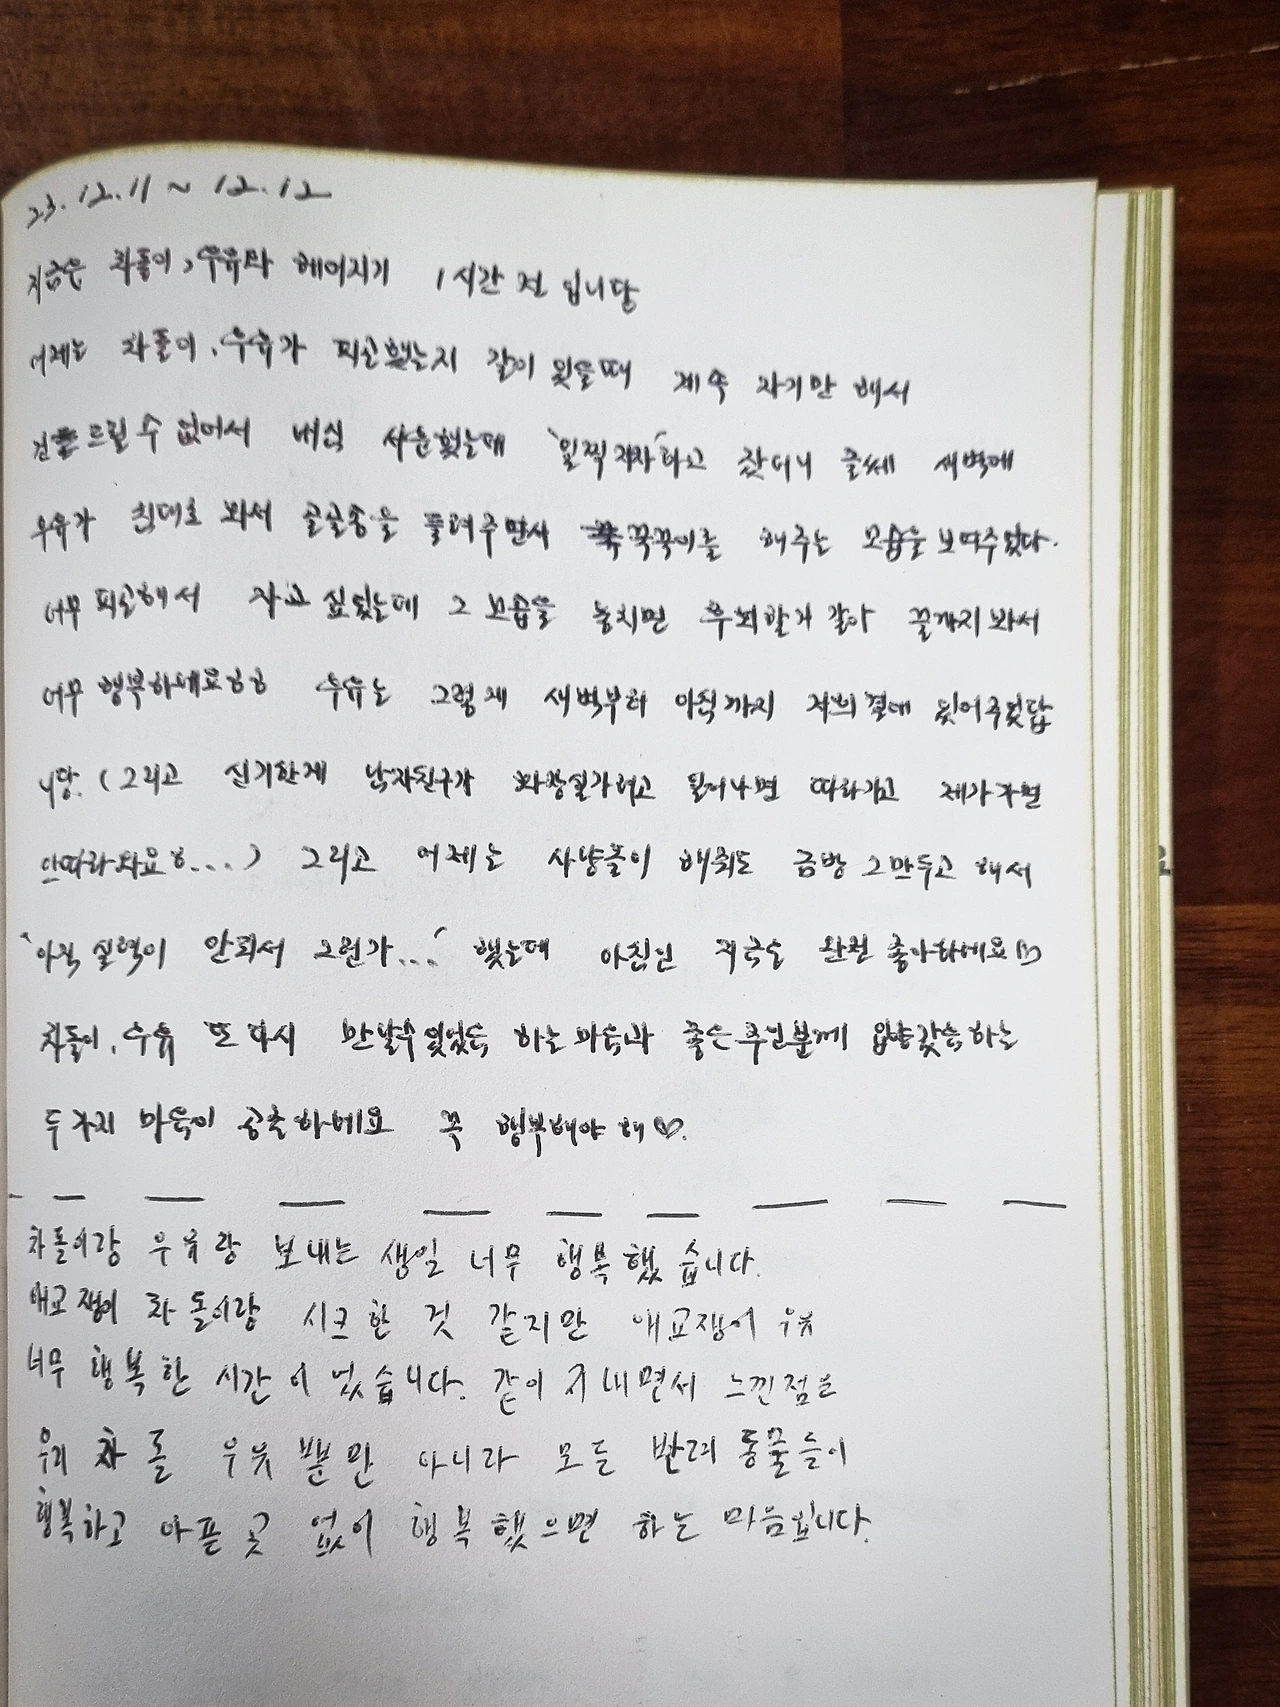 23.12.11 ~ 12.12
지금은 차돌이, 우유와 헤어지기 1시간 전 입니당
어제는 차돌이, 우유가 피곤했는지 같이 있을때 계속 자기만 해서
건드릴 수 없어서 내심 서운했는데 '일찍자자'하고 잤더니 글쎄 새벽에
우유가 침대로 와서 골골송을 들려주면서 꾹꾹이를 해주는 모습을 보여주었다.
너무 피곤해서 자고 싶었는데 그 모습을 놓치면 후회할거 같아 끝까지 봐서
너무 행복하네요ㅎㅎ 우유는 그렇게 새벽부터 아침까지 저희 곁에 있어주었답
니당. (그리고 신기한게 남자친구가 화장실가려고 일어나면 따라가고 제가가면
안따라와요ㅎ...) 그리고 어제는 사냥놀이 해줘도 금방 그만두고 해서
'아직 실력이 안돼서 그런가...' 했는데 아침인 지금은 완전 좋아하네요♡
차돌이, 우유 또 다시 만날수있었음 하는 마음과 좋은주인분께 입양갔음하는
두가지 마음이 공존하네요 꼭 행복해야 해♡.
차돌이랑 우유랑 보내는 생일 너무 행복했습니다.
애교쟁이 차돌이랑 시크한 것 같지만 애교쟁이 우유
너무 행복한 시간이었습니다. 같이 지내면서 느낀점은
우리 차돌 우유 뿐만 아니라 모든 반려동물들이
행복하고 아픈 곳 없이 행복했으면 하는 마음입니다.